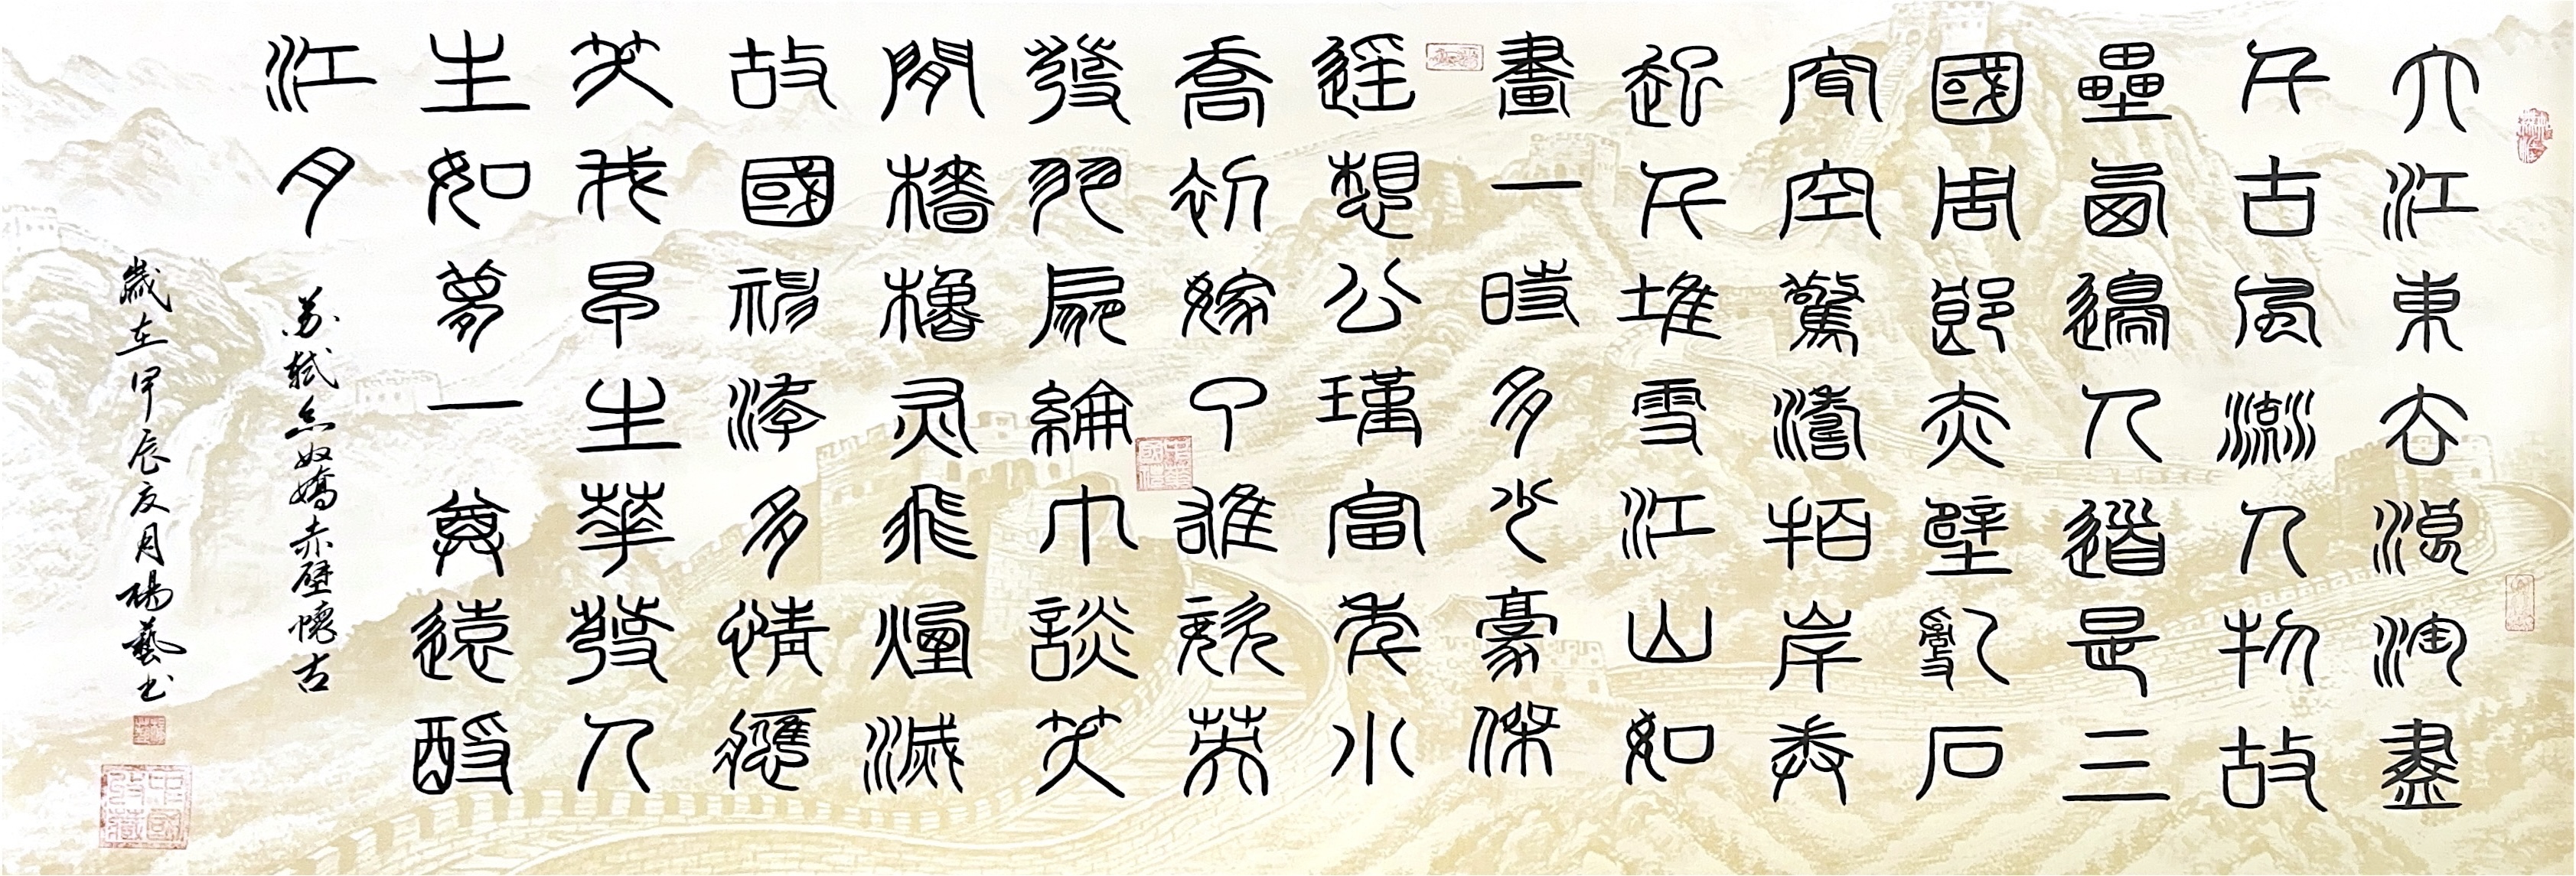 大江東去浪淘盡
千古風流人物故
壘西邊人道是三
國周郎赤壁亂石
穿空驚濤拍岸卷
起千堆雪江山如
畫一時多少豪傑
遙想公瑾當年小
喬初嫁了雄姿英
發羽扇綸巾談笑
間檣櫓灰飛煙滅
故國神游多情應
笑我早生華發人
生如夢一尊還酹
江月
蘇軾念奴嬌赤壁懷古
歲在甲辰夏月楊藝書